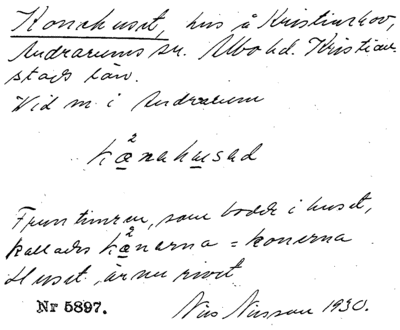 Konehuset, hus å Kristinehov,
Andrarums sn. Albo hd. Kristian-
stads län.
Vid m. i Andrarum
kä²nahusad
Fruntimren, som bodde i huset,
kallades kä²narna = konerna
Huset är nu rivet
Nr 5897. Nils Nilsson 1930.